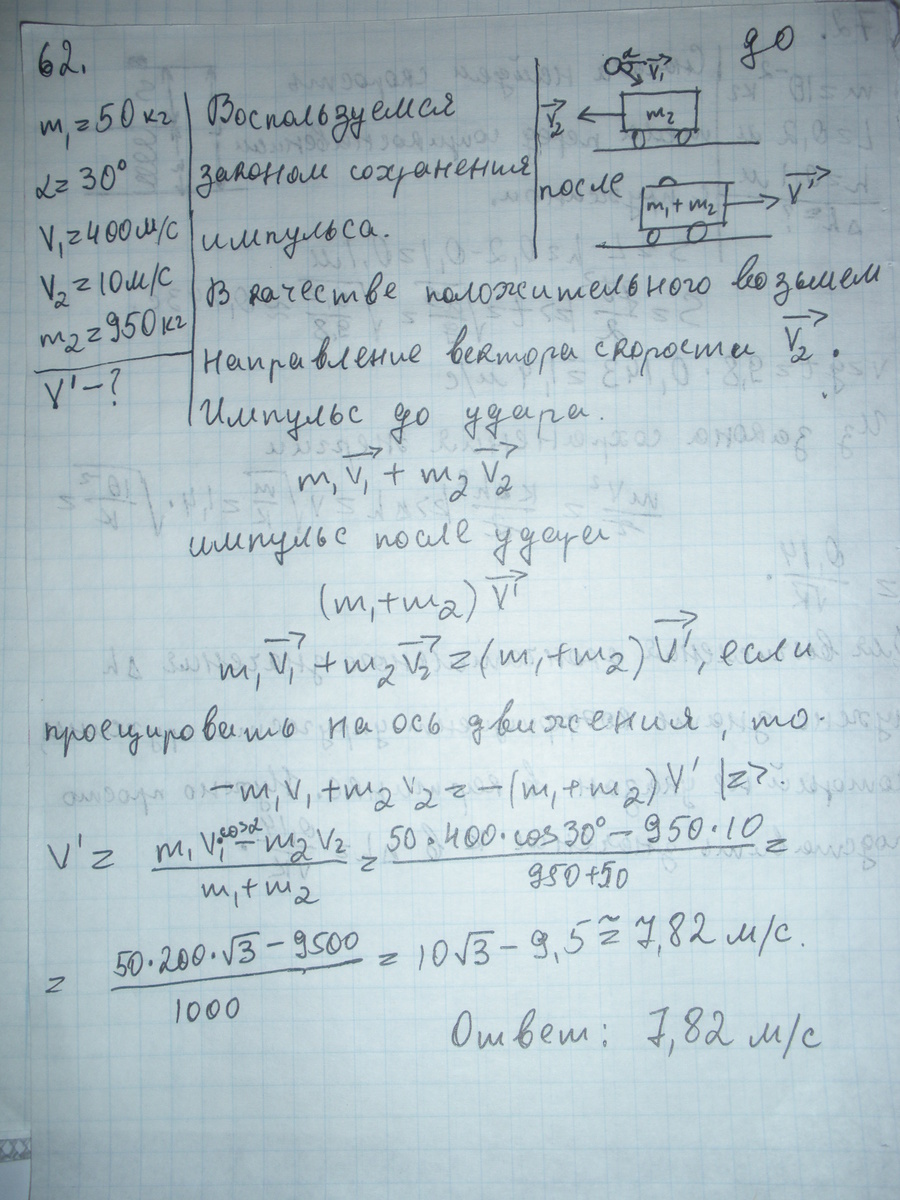 62.
до
m₁=50 кг
α=30°
V₁=400 м/с
V₂=10 м/с
m₂=950 кг
V'-?
Воспользуемся
законом сохранения
импульса.
α V₁
V₂ m₂
после
m₁+m₂ V'
В качестве положительного возьмем
направление вектора скорости V₂.
Импульс до удара.
m₁V₁ + m₂V₂
импульс после удара
(m₁+m₂)V'
m₁V₁+m₂V₂=(m₁+m₂)V', если
проецировать на ось движения, то.
-m₁V₁+m₂V₂=-(m₁+m₂)V' |=>.
V' = (m₁V₁cosα - m₂V₂)/(m₁+m₂) = (50·400·cos30°-950·10)/(950+50) =
= (50·200·√3-9500)/1000 = 10√3-9,5≈7,82 м/с.
Ответ: 7,82 м/с